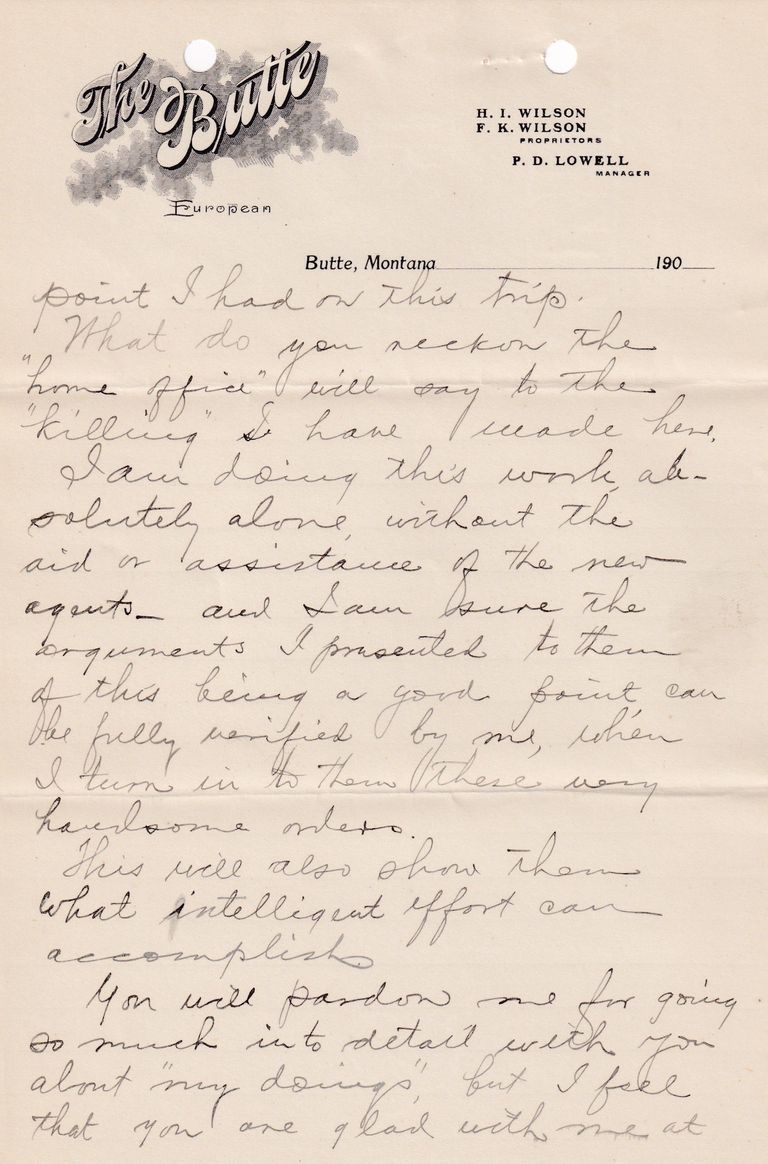 The Butte
European
H. I. WILSON
F. K. WILSON
PROPRIETORS
P. D. LOWELL
MANAGER
Butte, Montana 190
point I had on this trip.
What do you reckon the
"home office" will say to the
"killing" I have made here.
I am doing this work ab-
solutely alone, without the
aid or assistance of the new
agents - and I am sure the
arguments I presented to them
of this being a good point can
be fully verified by me, when
I turn in to them these very
handsome orders.
This will also show them
what intelligent effort can
accomplish
You will pardon me for going
so much into detail with you
about "my doings", but I feel
that you are glad with me at